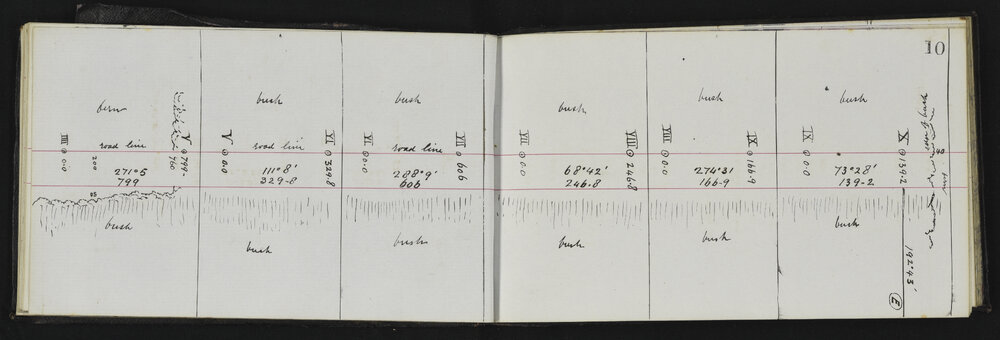 10
fern
bush
bush
bush
bush
bush
road line
road line
road line
IIII ⊙ 0.0
200
760
V ⊙ 799
V ⊙ 0.0
VI ⊙ 329.8
VI ⊙ 0.0
VII 606
VII ⊙ 0.0
VIII ⊙ 246.8
VIII ⊙ 0.0
IX ⊙ 166.9
IX ⊙ 0.0
X ⊙ 139.2
271°5
799
111°8'
329.8
288°9'
606
68°42'
246.8
274°31'
166.9
73°28'
139-2
bush
bush
bush
bush
bush
bush
192°43'
E